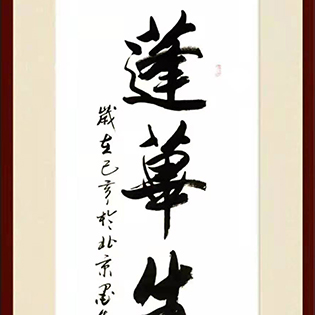 蓬蓽生
歲在己亥於北京